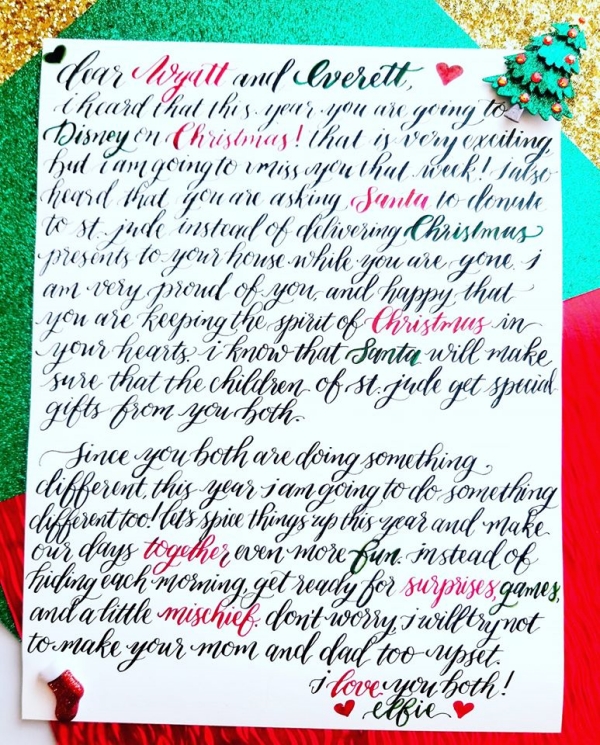 dear Wyatt and Everett,
i heard that this year you are going to
Disney on Christmas! that is very exciting,
but i am going to miss you that week! i also
heard that you are asking Santa to donate
to st. jude instead of delivering Christmas
presents to your house while you are gone. i
am very proud of you, and happy that
you are keeping the spirit of Christmas in
your hearts. i know that Santa will make
sure that the children of st. jude get special
gifts from you both.
Since you both are doing something
different, this year i am going to do something
different too! let's spice things up this year and make
our days together even more fun. instead of
hiding each morning, get ready for surprises, games,
and a little mischief. don't worry, i will try not
to make your mom and dad too upset.
i love you both!
elfie